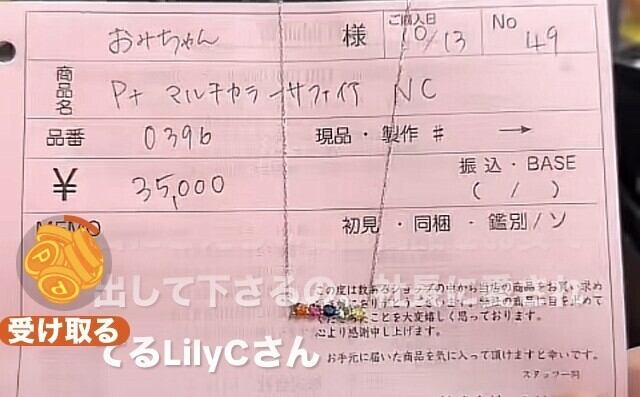 おみちゃん 様 ご購入日 10/13 No 49
商品名 Pt マルチカラーサファイア NC
品番 0396 現品・製作 # →
振込・BASE
¥ 35,000 ( / )
MEMO 初見・同梱・鑑別/ソ
この度は数あるショップの中から当店の商品をお買い求め
出して下さるの、社長に愛され
ことを大変嬉しく思っております。
心より感謝申し上げます。
受け取る
てるLilyCさん
お手元に届いた商品を気に入って頂けますと幸いです。
スタッフ一同